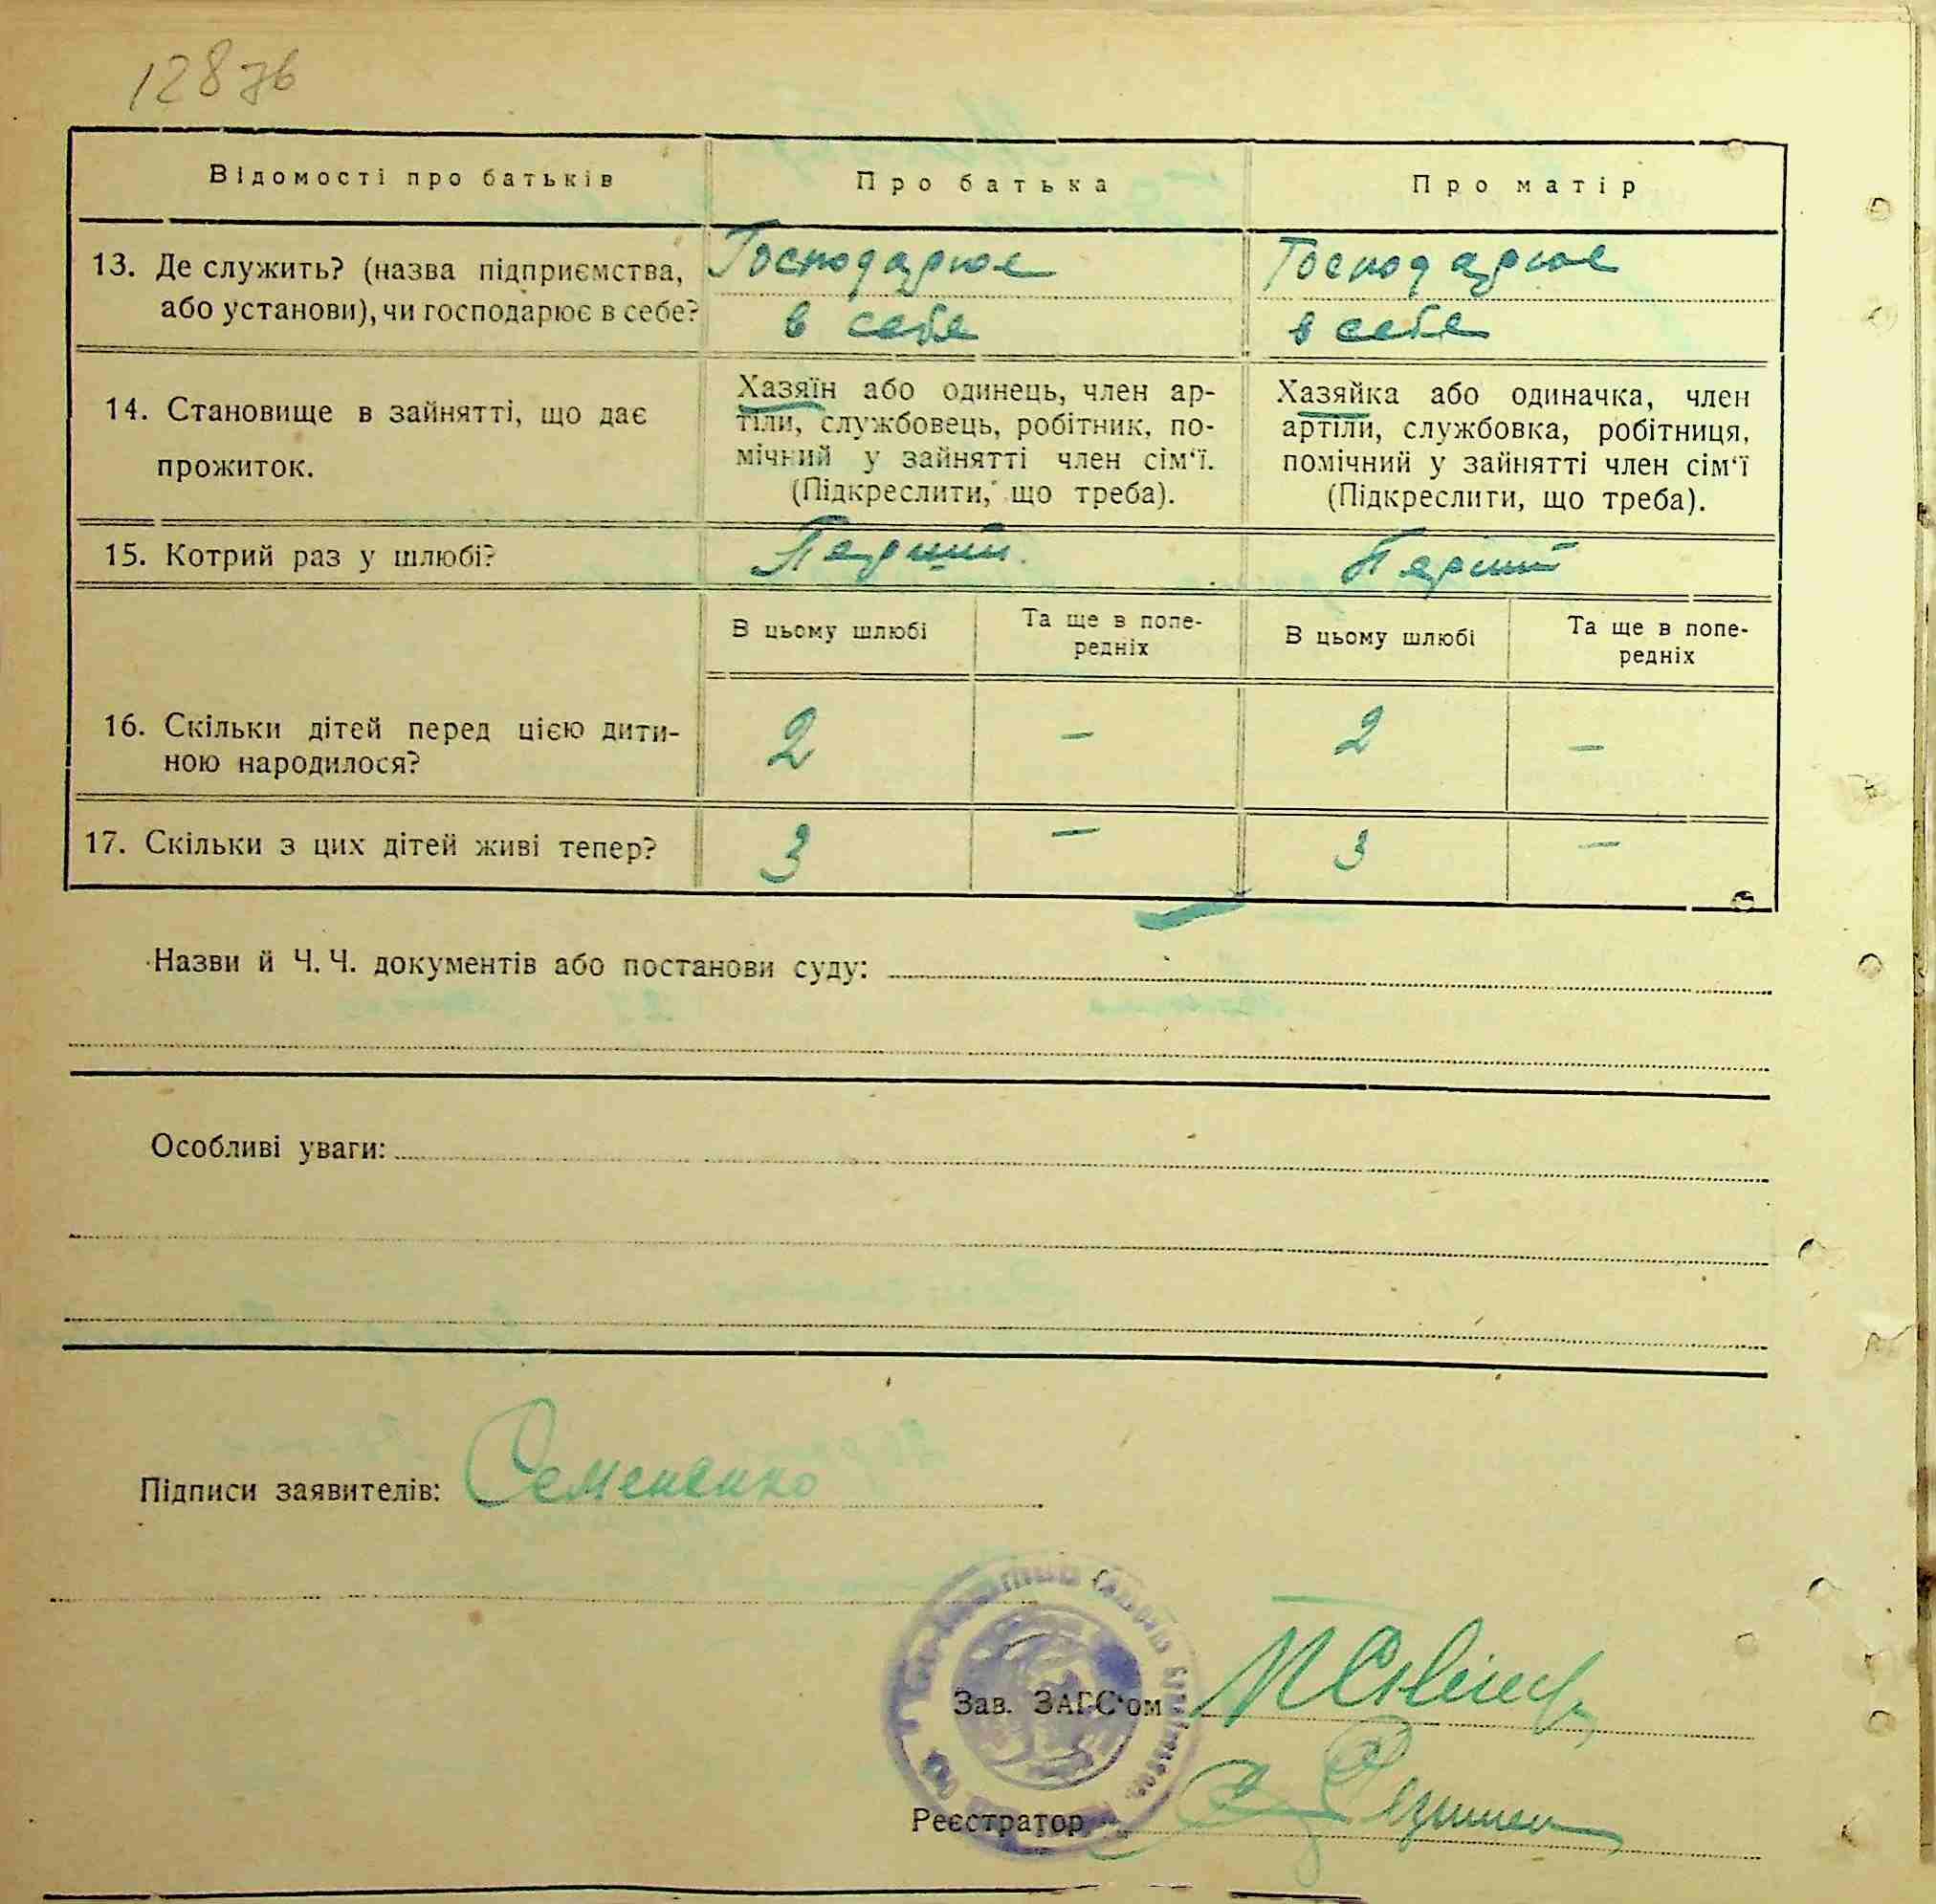 128 зв
Відомості про батьків
Про батька
Про матір
13. Де служить? (назва підприємства,
або установи), чи господарює в себе?
Господарює
в себе
Господарює
в себе
14. Становище в зайнятті, що дає
прожиток.
Хазяїн або одинець, член ар-
тіли, службовець, робітник, по-
мічний у зайнятті член сім‘ї.
(Підкреслити, що треба).
Хазяйка або одиначка, член
артіли, службовка, робітниця,
помічний у зайнятті член сім‘ї
(Підкреслити, що треба).
15. Котрий раз у шлюбі?
Перший
Перший
В цьому шлюбі
Та ще в попе-
редніх
В цьому шлюбі
Та ще в попе-
редніх
16. Скільки дітей перед цією дити-
ною народилося?
2 — 2 —
17. Скільки з цих дітей живі тепер?
3 — 3 —
Назви й Ч. Ч. документів або постанови суду:
Особливі уваги:
Підписи заявителів: Семененко
Зав. ЗАГС‘ом
Реєстратор